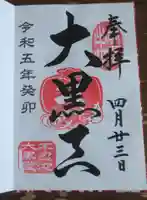 奉拝
四月廿三日
大黒天
令和五年癸卯